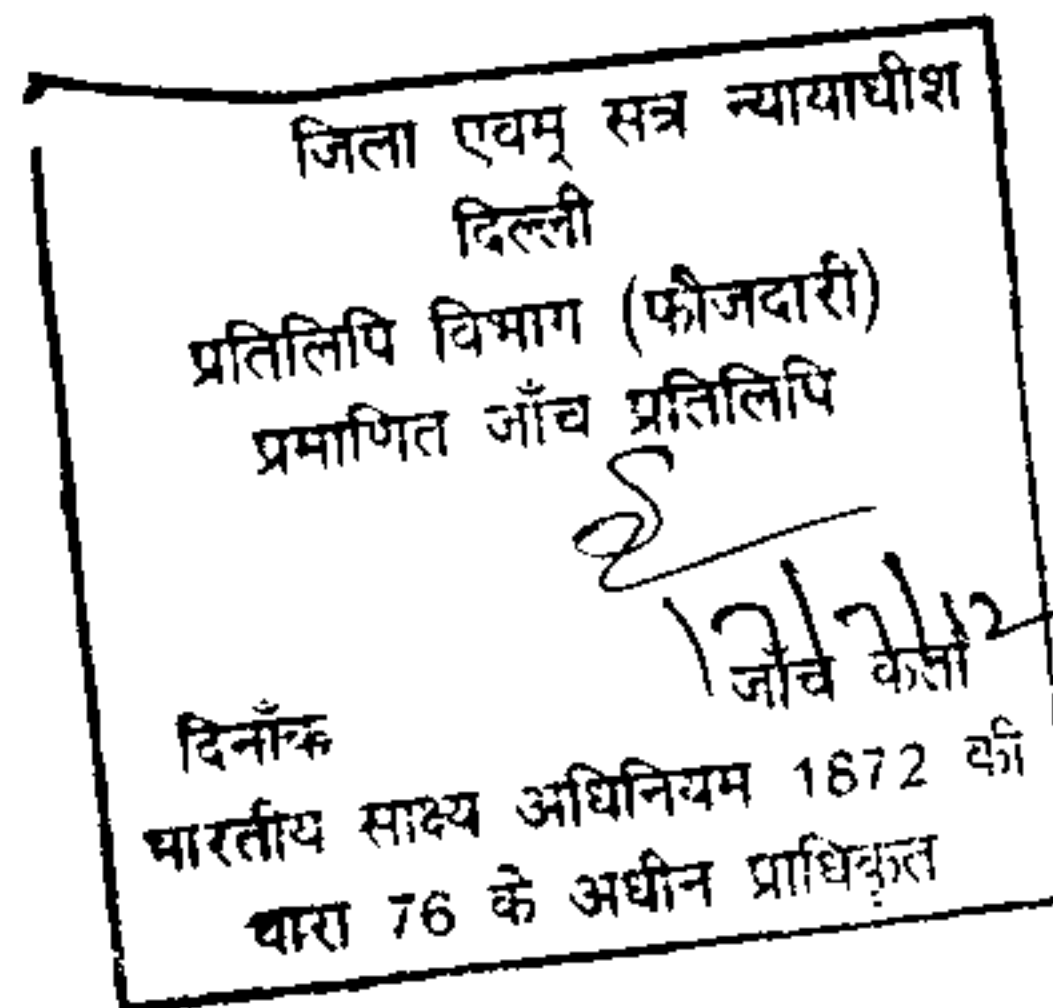 जिला एवम् सत्र न्यायाधीश
दिल्ली
प्रतिलिपि विभाग (फौजदारी)
प्रमाणित जाँच प्रतिलिपि
जाँच कर्ता
दिनाँक
भारतीय साक्ष्य अधिनियम 1872 की
धारा 76 के अधीन प्राधिकृत